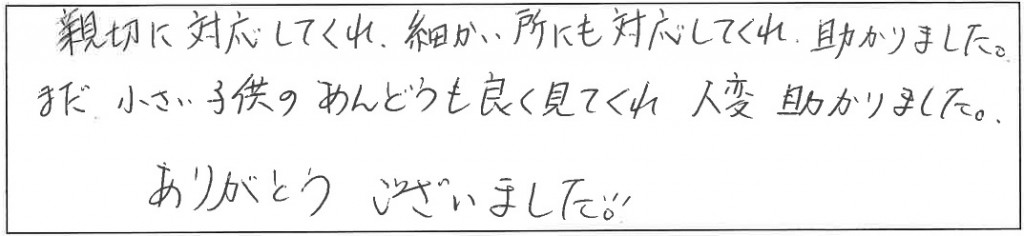 親切に対応してくれ、細かい所にも対応してくれ、助かりました。
まだ小さい子供のめんどうも良く見てくれ 大変 助かりました。
ありがとう ございました。